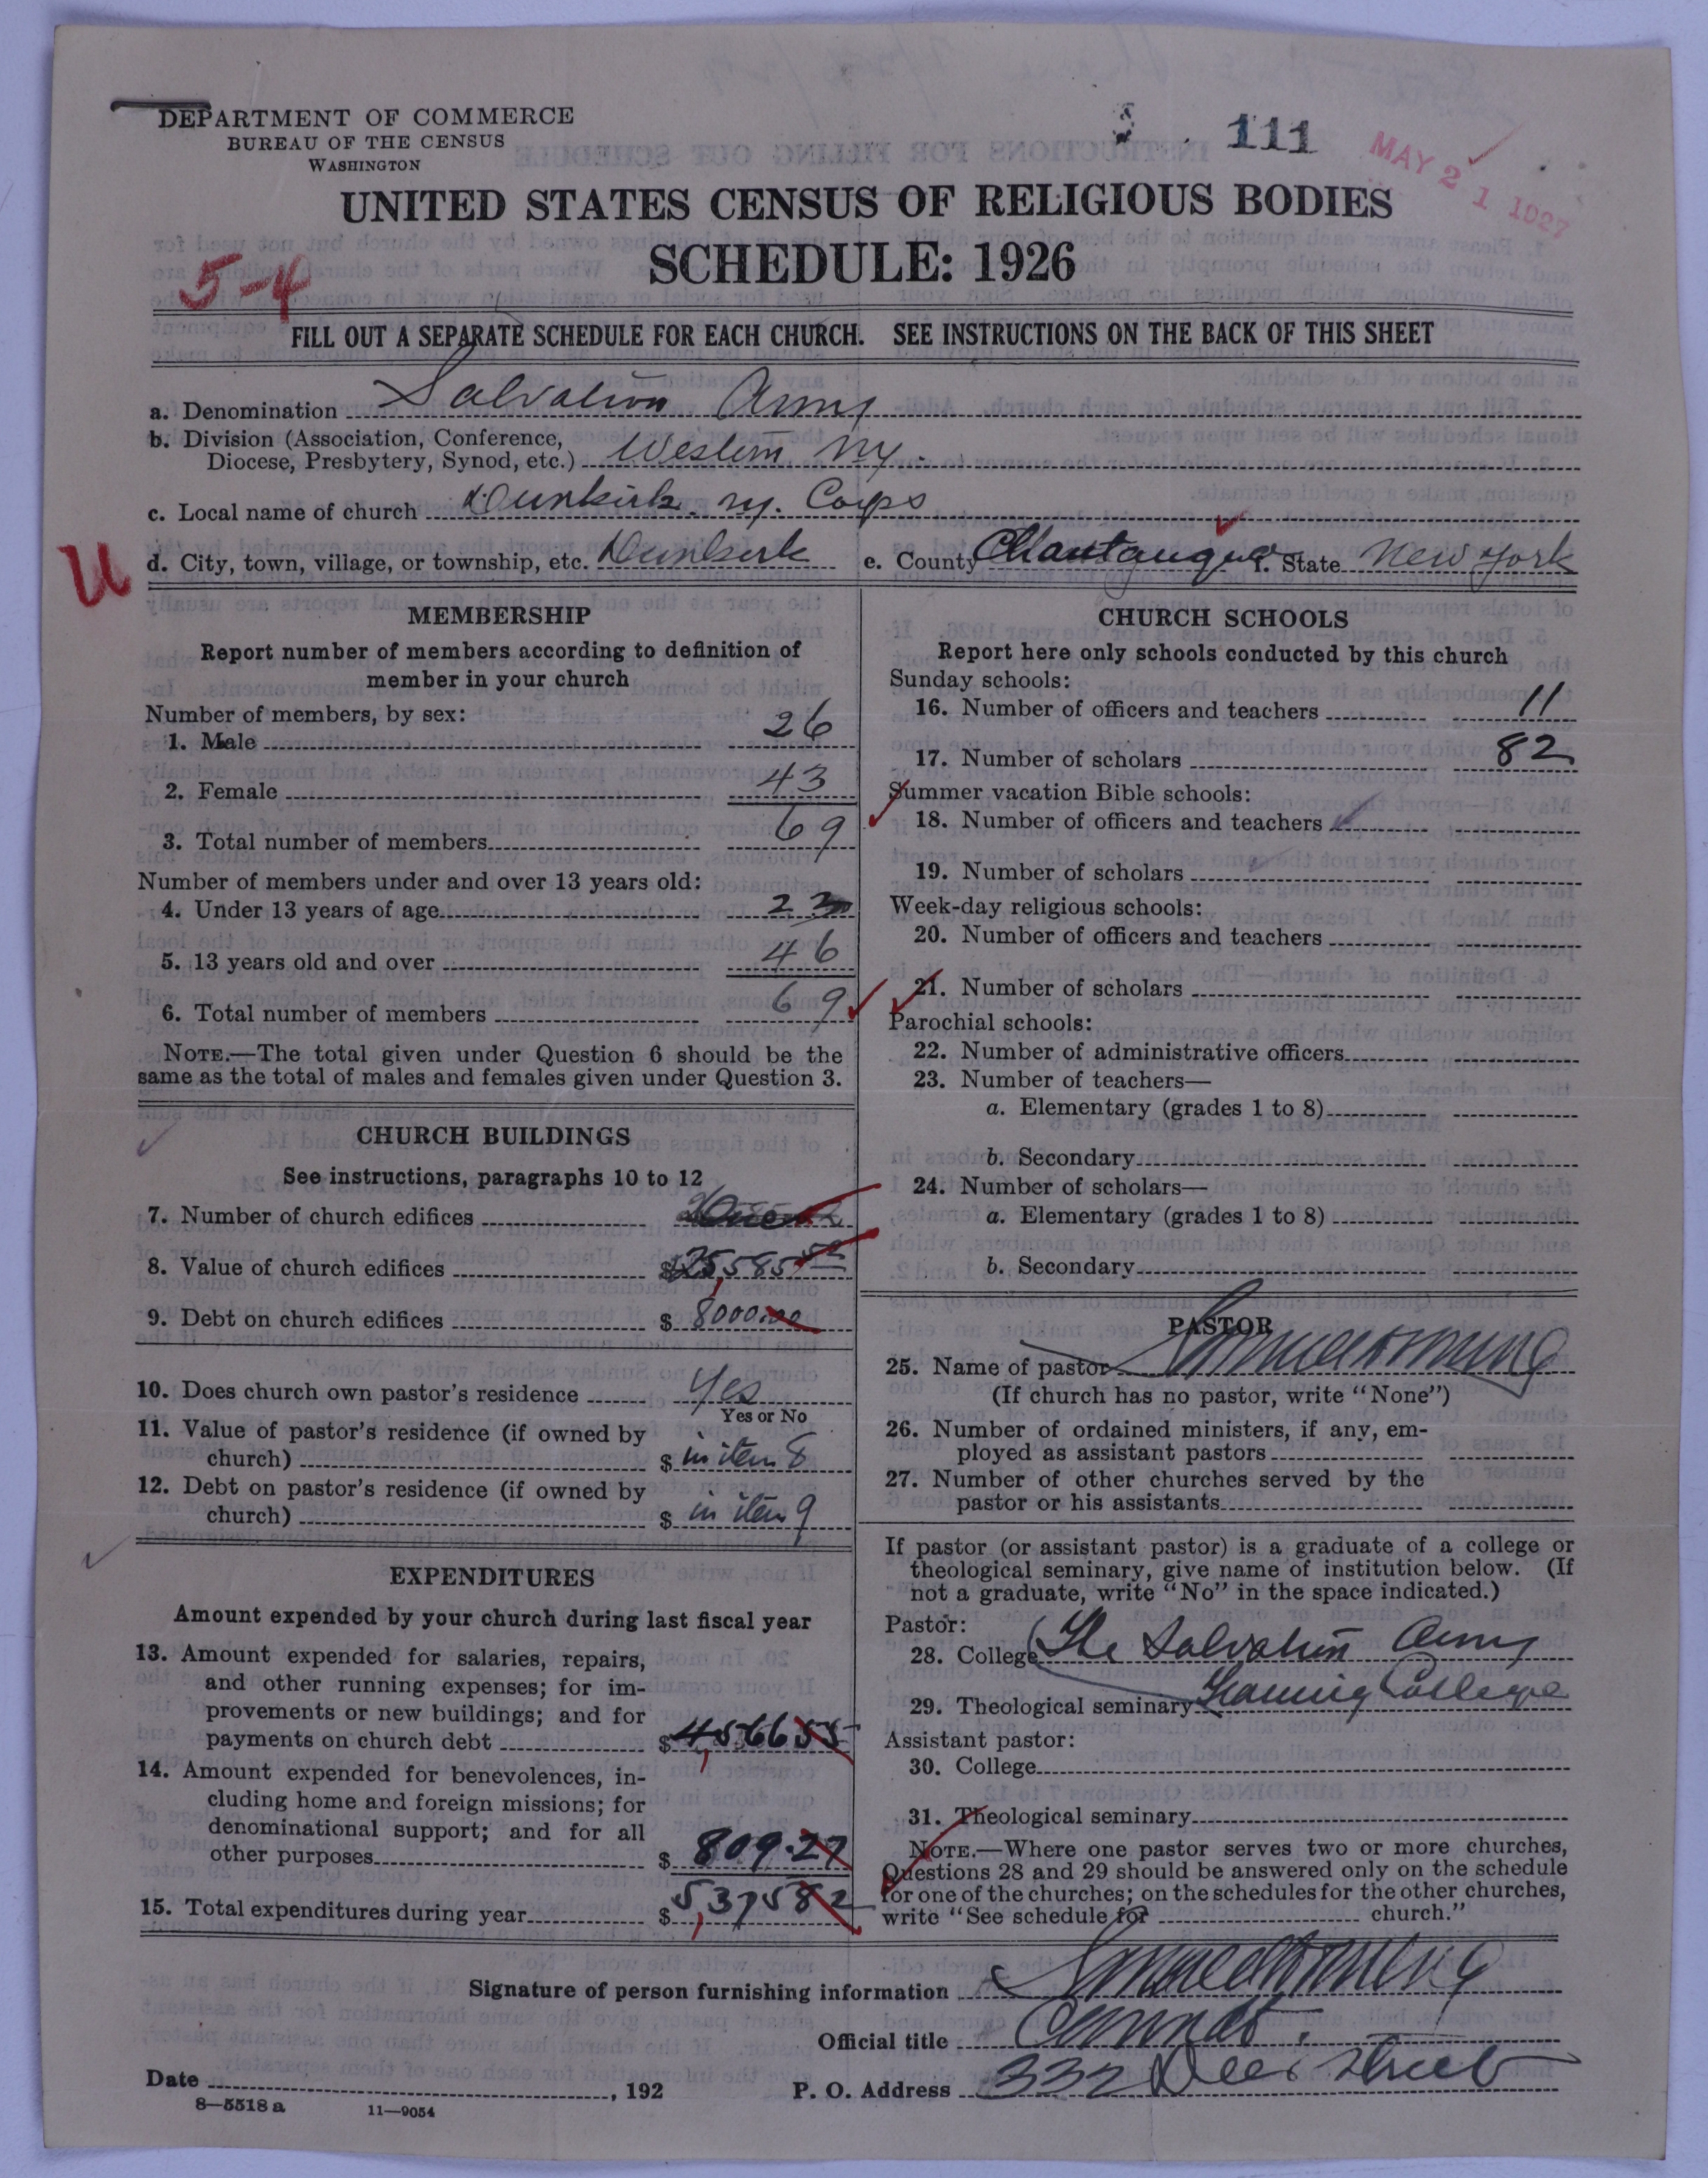 DEPARTMENT OF COMMERCE
BUREAU OF THE CENSUS
WASHINGTON
111
MAY 21 1927
UNITED STATES CENSUS OF RELIGIOUS BODIES
SCHEDULE: 1926
5-4
FILL OUT A SEPARATE SCHEDULE FOR EACH CHURCH. SEE INSTRUCTIONS ON THE BACK OF THIS SHEET
a. Denomination Salvation Army
b. Division (Association, Conference,
Diocese, Presbytery, Synod, etc.) Western N.Y.
c. Local name of church Dunkirk. N.Y. Corps
U
d. City, town, village, or township, etc. Dunkirk e. County Chautauqua f. State New York
MEMBERSHIP
Report number of members according to definition of
member in your church
Number of members, by sex:
1. Male 26
2. Female 43
3. Total number of members 69
Number of members under and over 13 years old:
4. Under 13 years of age 23
5. 13 years old and over 46
6. Total number of members 69
NOTE.—The total given under Question 6 should be the
same as the total of males and females given under Question 3.
CHURCH BUILDINGS
See instructions, paragraphs 10 to 12
7. Number of church edifices One
8. Value of church edifices $ 25,585
9. Debt on church edifices $ 8000.00
10. Does church own pastor's residence Yes
Yes or No
11. Value of pastor's residence (if owned by
church) $ in item 8
12. Debt on pastor's residence (if owned by
church) $ in item 9
EXPENDITURES
Amount expended by your church during last fiscal year
13. Amount expended for salaries, repairs,
and other running expenses; for im-
provements or new buildings; and for
payments on church debt $ 4,566 55
14. Amount expended for benevolences, in-
cluding home and foreign missions; for
denominational support; and for all
other purposes $ 809.27
15. Total expenditures during year $ 5,375 82
CHURCH SCHOOLS
Report here only schools conducted by this church
Sunday schools:
16. Number of officers and teachers 11
17. Number of scholars 82
Summer vacation Bible schools:
18. Number of officers and teachers
19. Number of scholars
Week-day religious schools:
20. Number of officers and teachers
21. Number of scholars
Parochial schools:
22. Number of administrative officers
23. Number of teachers—
a. Elementary (grades 1 to 8)
b. Secondary
24. Number of scholars—
a. Elementary (grades 1 to 8)
b. Secondary
PASTOR
25. Name of pastor
(If church has no pastor, write "None")
26. Number of ordained ministers, if any, em-
ployed as assistant pastors
27. Number of other churches served by the
pastor or his assistants
If pastor (or assistant pastor) is a graduate of a college or
theological seminary, give name of institution below. (If
not a graduate, write "No" in the space indicated.)
Pastor:
28. College The Salvation Army
29. Theological seminary Training College
Assistant pastor:
30. College
31. Theological seminary
NOTE.—Where one pastor serves two or more churches,
Questions 28 and 29 should be answered only on the schedule
for one of the churches; on the schedules for the other churches,
write "See schedule for church."
Signature of person furnishing information
Official title
Date , 192 P. O. Address 332 Deer Street
8—5518 a 11—9054